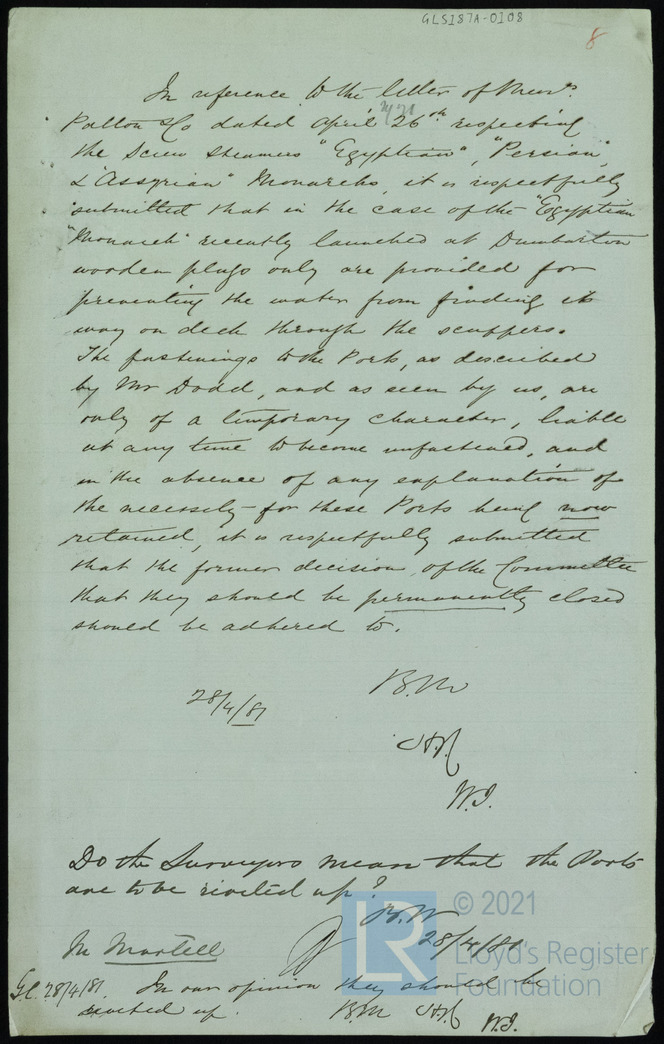 GLS187A-0108
8
In reference to the letter of Messrs.
Patton & Co dated April 26th respecting
the Screw Steamers "Egyptian", "Persian",
& "Assyrian" Monarchs, it is respectfully
submitted that in the case of the "Egyptian
Monarch" recently launched at Dumbarton
wooden plugs only are provided for
preventing the water from finding its
way on deck through the scuppers.
The fastenings to the Ports, as described
by Mr Dodd, and as seen by us, are
only of a temporary character, liable
at any time to become unfastened, and
in the absence of any explanation of
the necessity for these Ports being now
retained, it is respectfully submitted
that the former decision of the Committee
that they should be permanently closed
should be adhered to.
28/4/81
B.M
W.J.
Do the Surveyors mean that the Ports
are to be riveted up?
B.W
28/4/81
Mr Martell
28/4/81. In our opinion they should be
riveted up.
B.M
W.J.
LR
© 2021
Lloyd's Register
Foundation